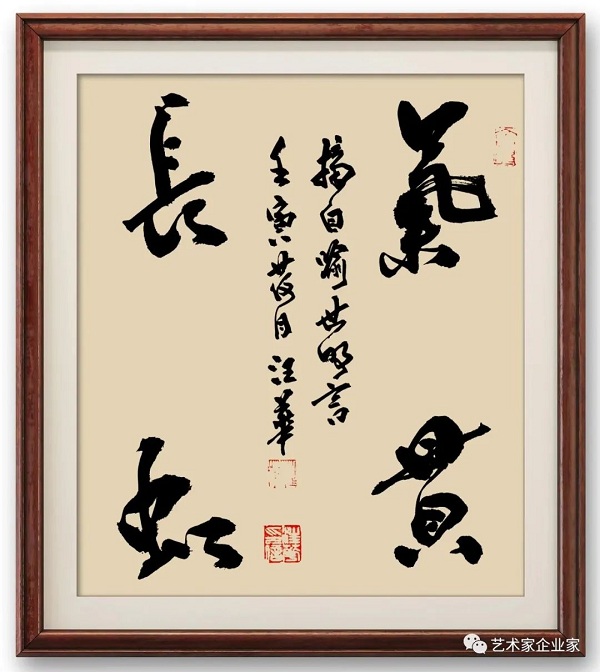 氣貫
摘自喻世明言
壬寅月汪華
長虹
艺术家企业家